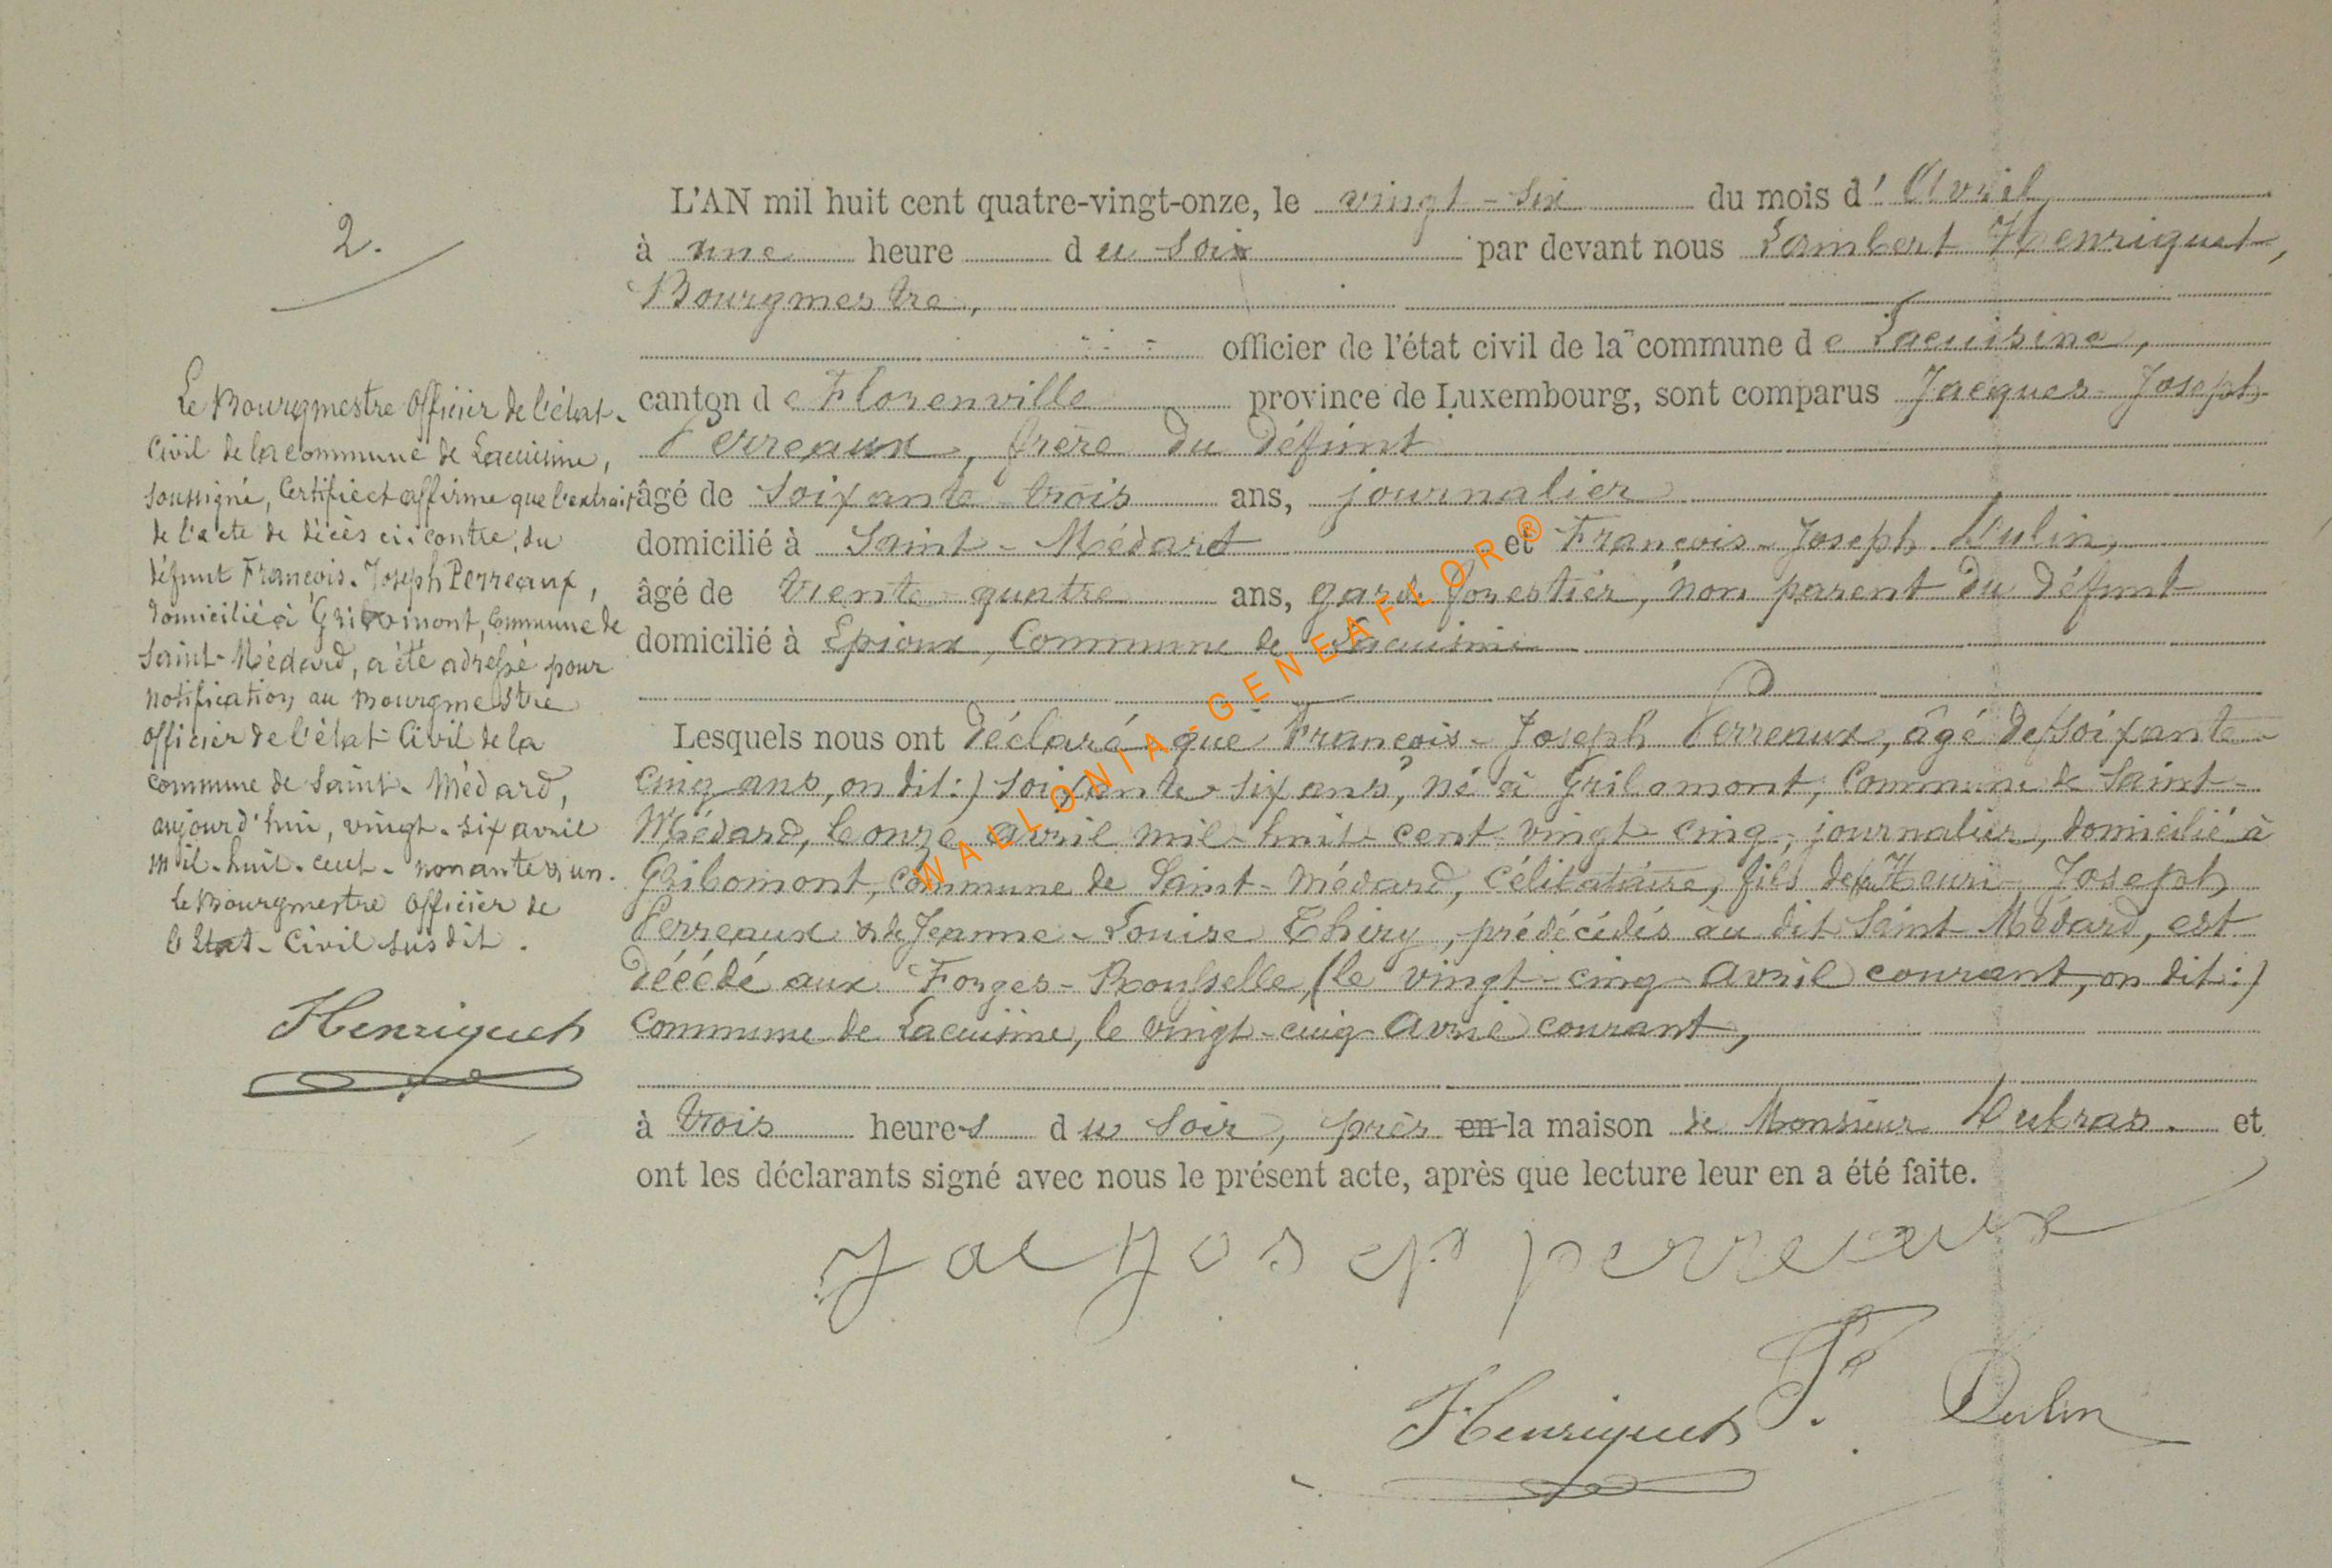 2.
Le Bourgmestre Officier de l'état-
Civil de la commune de Lacuisine,
soussigné, Certifie et affirme que l'extrait
de l'acte de décès ci-contre, du
défunt François-Joseph Perreaux,
domicilié à Gribomont, Commune de
Saint-Médard, a été adressé pour
notification au Bourgmestre
Officier de l'état-Civil de la
commune de Saint-Médard,
aujourd'hui, vingt-six avril
mil-huit-cent-nonante & un.
Le Bourgmestre Officier de
l'Etat-Civil susdit.
Henriquet
L'AN mil huit cent quatre-vingt-onze, le vingt-six du mois d'Avril
à une heure du soir par devant nous Lambert Henriquet,
Bourgmestre,
officier de l'état civil de la commune de Lacuisine,
canton de Florenville province de Luxembourg, sont comparus Jacques-Joseph
Perreaux, frère du défunt
âgé de soixante trois ans, journalier
domicilié à Saint-Médard et François-Joseph Dulin,
âgé de trente quatre ans, garde forestier, non parent du défunt
domicilié à Epioux, Commune de Lacuisine
Lesquels nous ont déclaré que François-Joseph Perreaux, âgé de (soixante-
cinq ans, on dit:) soixante-six ans, né à Gribomont, Commune de Saint-
Médard, le onze avril mil-huit-cent-vingt-cinq, journalier, domicilié à
Gribomont, Commune de Saint-Médard, célibataire, fils de feu Henri-Joseph
Perreaux & de Jeanne-Louise Thiry, prédécédés au dit Saint Médard, est
décédé aux Forges-Rousselle, (le vingt-cinq avril courant, on dit:)
commune de Lacuisine, le vingt-cinq Avril courant,
à trois heures du soir, près en la maison de Monsieur Dubras. et
ont les déclarants signé avec nous le présent acte, après que lecture leur en a été faite.
Jac Josep perreaux
Henriquet Dulin
WALLONIA-GENEAFLOR®